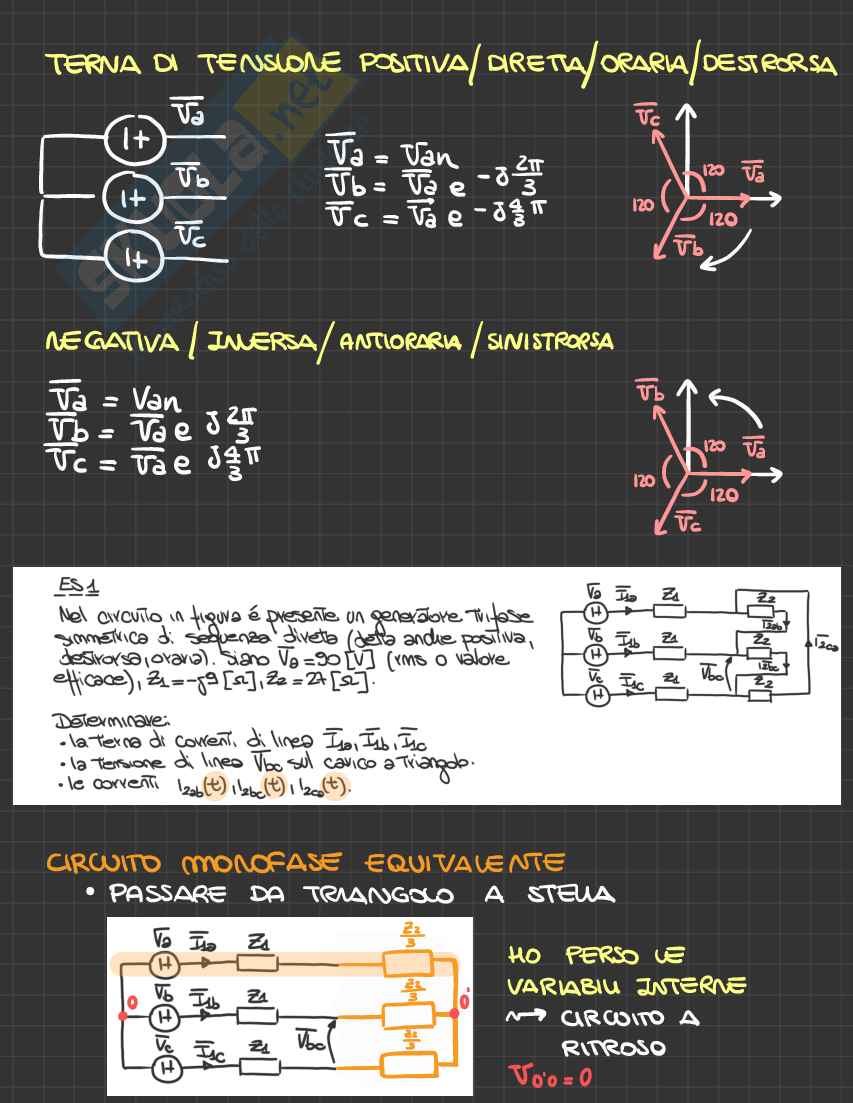 TERNA DI TENSIONE POSITIVA/DIRETTA/ORARIA/DESTRORSA
Va
Vb
Vc
Va = Van
Vb = Va e -j 2π/3
Vc = Va e -j 4/3 π
Vc
120
Va
120
120
Vb
NEGATIVA / INVERSA / ANTIORARIA / SINISTRORSA
Va = Van
Vb = Va e j 2π/3
Vc = Va e j 4/3 π
Vb
120
Va
120
120
Vc
ES 1
Nel circuito in figura é presente un generatore trifase
simmetrica di sequenza diretta (detta anche positiva,
destrorsa, oraria). Siano Va = 90 [V] (rms o valore
efficace), Z1 = -j9 [Ω], Z2 = 27 [Ω].
Determinare:
• la terna di correnti di linea I1a, I1b, I1c
• la tensione di linea Vbc sul carico a triangolo.
• le correnti i2ab(t), i2bc(t), i2ca(t).
Va I1a Z1 Z2
I2ab
Vb I1b Z1 Z2
I2ca
Vbc
I2bc
Vc I1c Z1 Z2
CIRCUITO MONOFASE EQUIVALENTE
• PASSARE DA TRIANGOLO A STELLA
Va I1a Z1 Z2/3
0 Vb I1b Z1 Z2/3 0'
Vbc
Vc I1c Z1 Z2/3
HO PERSO LE
VARIABILI INTERNE
⇝ CIRCUITO A
RITROSO
V0'0 = 0